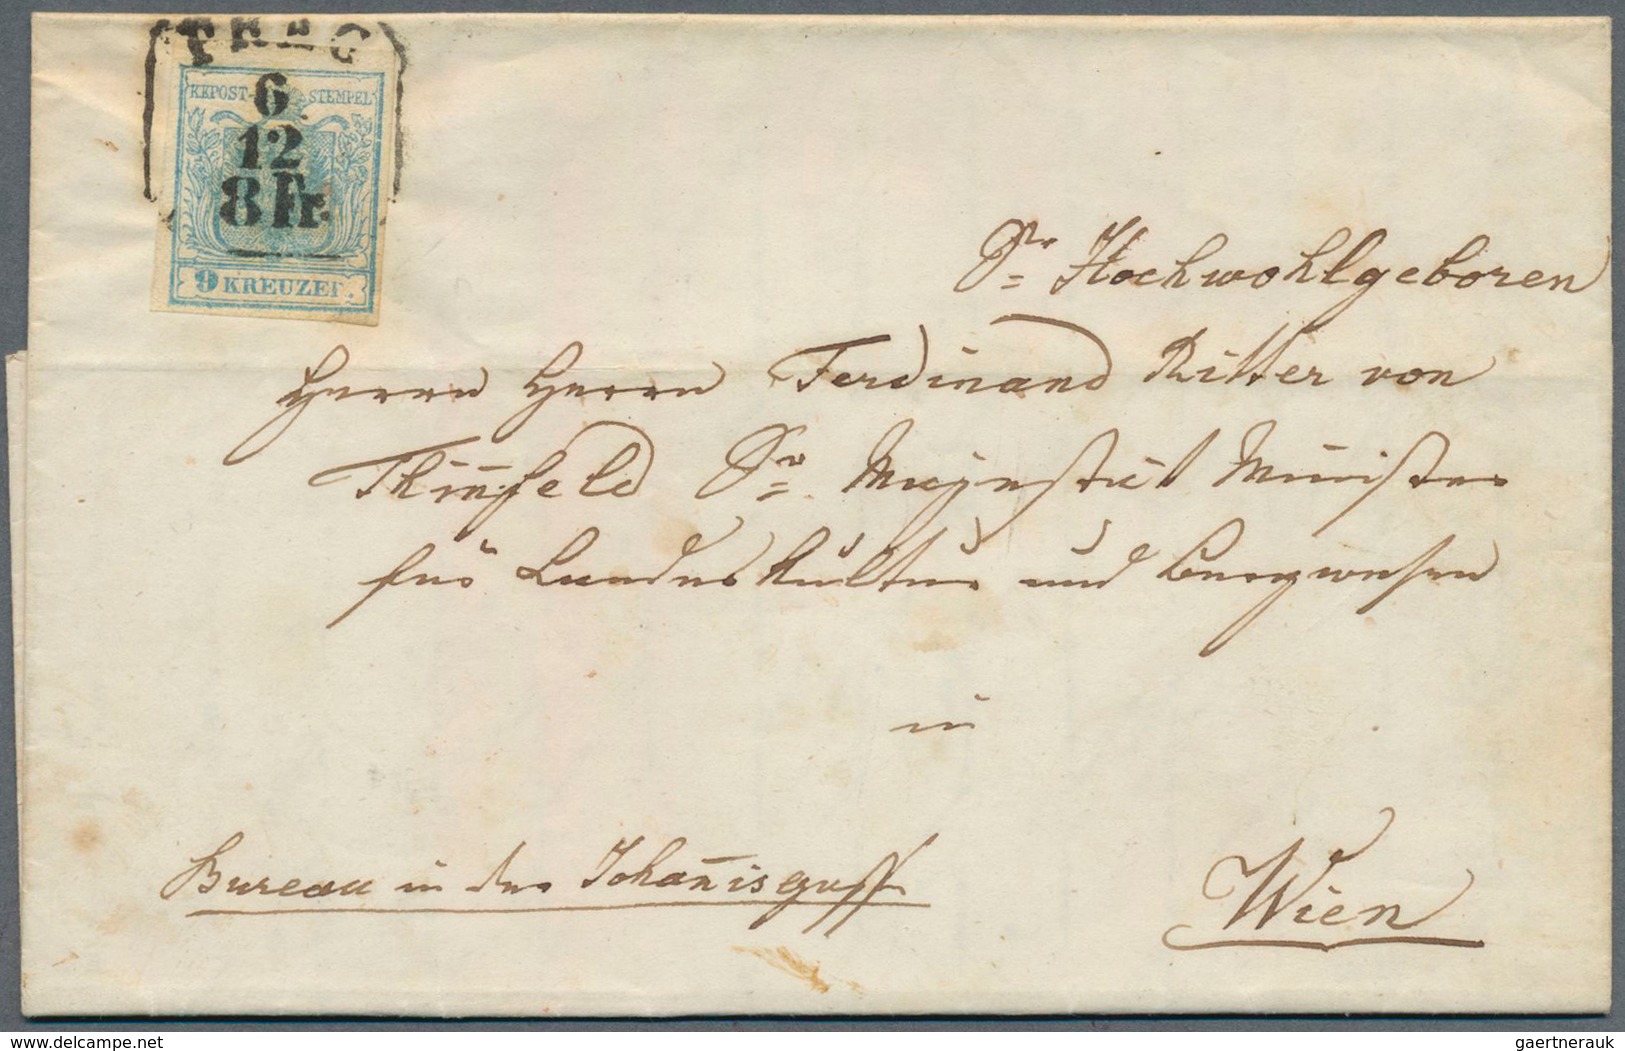 PRAG
6
12
8 Fr.
KKPOST-STEMPEL
9 KREUZER.
Sr. Hochwohlgeboren
Herrn Herrn Ferdinand Ritter von
Thinnfeld Sr. Majestät Minister
für Landeskultur und Bergwesen
in
Bureau in der Johannisgasse
Wien
www.delcampe.net
gaertnerauk